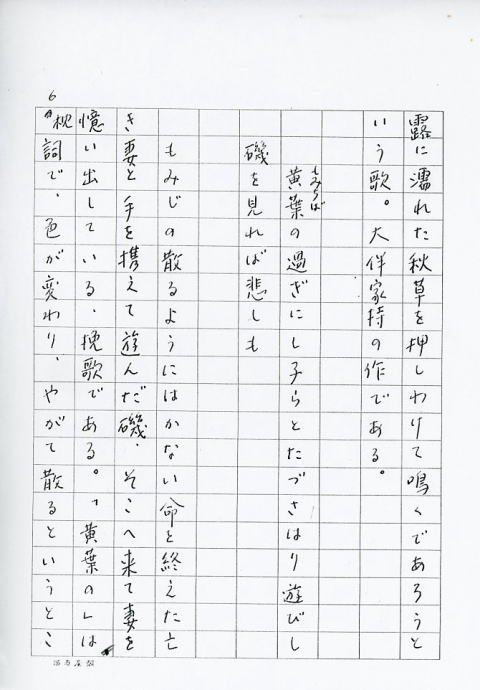 6
露に濡れた秋草を押しわりて鳴くであろうと
いう歌。大伴家持の作である。
もみちば
黄葉の過ぎにし子らとたづさはり遊びし
磯を見れば悲しも
もみじの散るようにはかない命を終えた亡
き妻と手を携えて遊んだ磯、そこへ来て妻を
憶い出している、挽歌である。「黄葉の」は
枕詞で、色が変わり、やがて散るというとこ